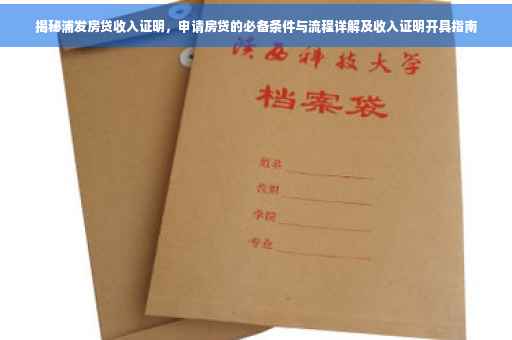 揭秘浦发房贷收入证明，申请房贷的必备条件与流程详解及收入证明开具指南
陕西科技大学
档案袋
姓名
性别
学院
专业